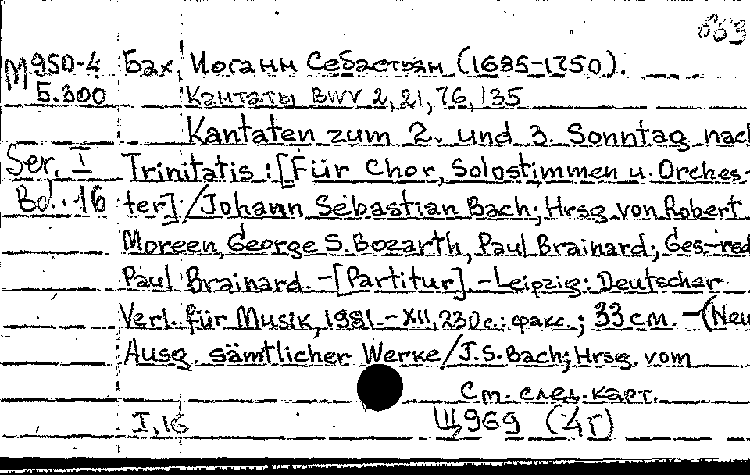 863
М950-4 Бах, Иоганн Себастьян (1685-1750).
Б.300 Кантаты BWV 2, 21, 76, 135
Kantaten zum 2. und 3. Sonntag nach
Ser. I Trinitatis : [Für Chor, Solostimmen u. Orches-
Bd. 16 ter] / Johann Sebastian Bach; Hrsg. von Robert
Moreen, George S. Bozarth, Paul Brainard; Ges-red
Paul Brainard. - [Partitur]. - Leipzig: Deutscher
Verl. für Musik, 1981. - XII, 230 с.: факс.; 33 см. - (Neu
Ausg. sämtlicher Werke / J.S. Bach; Hrsg. vom
См. след. карт.
I,16 Щ969 (4Г)